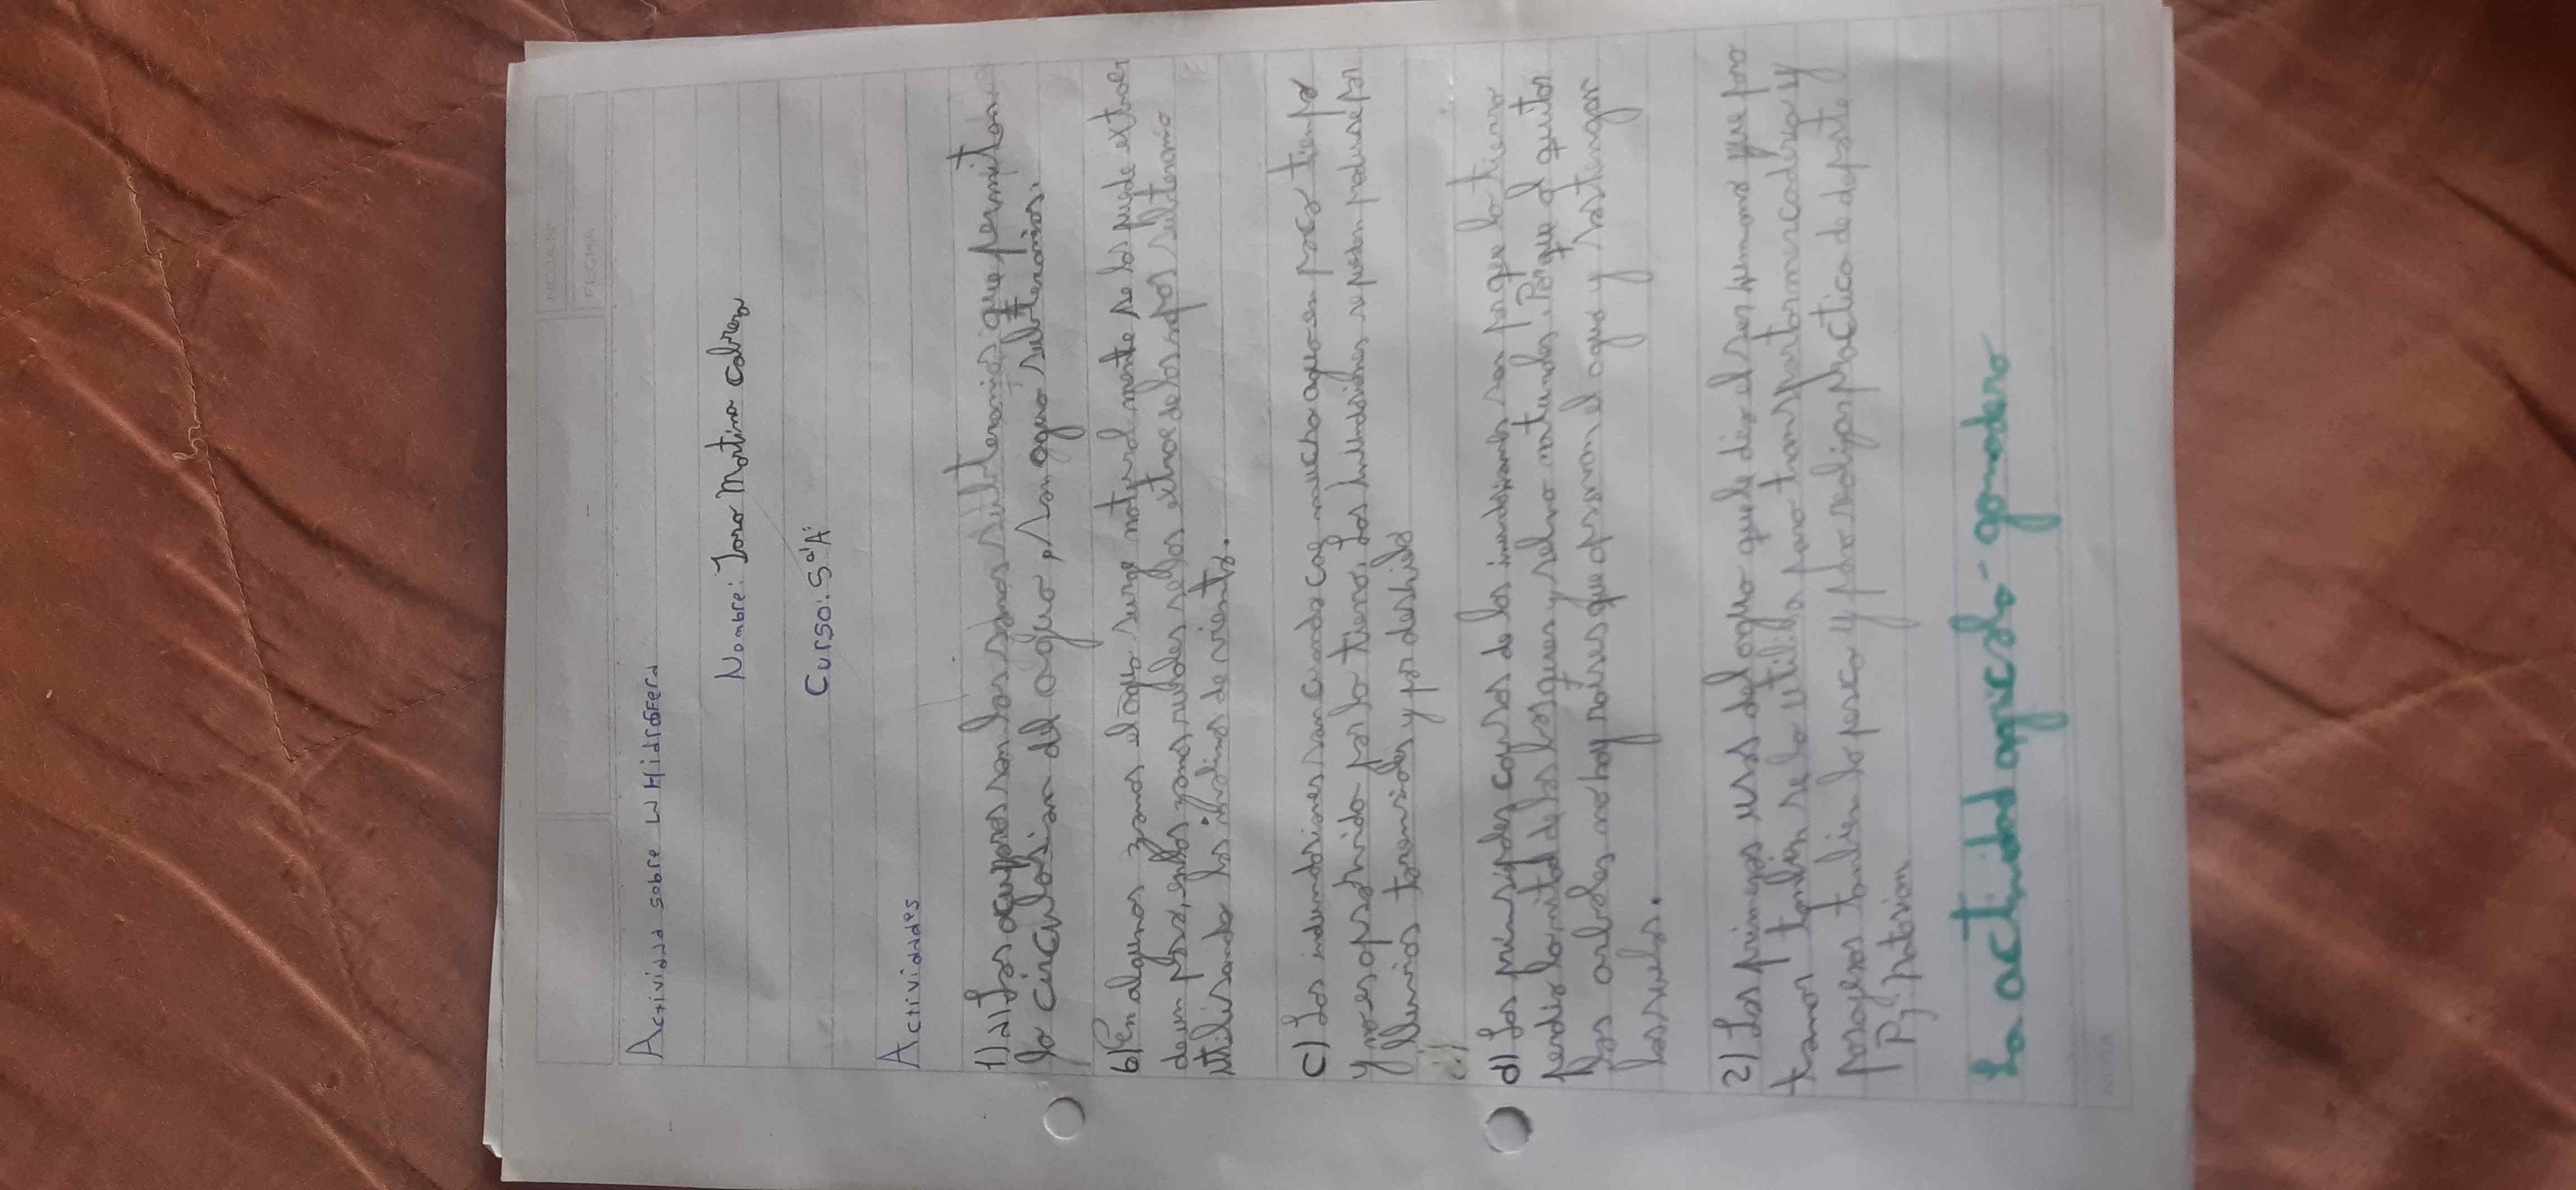 HOJA Nº
FECHA
Actividad sobre la Hidrósfera
Nombre: Toro Martina Cabrera
Curso: 5º"A"
Actividades
1) a) Los acuiferos son los sonos subterranios que permiten
la circulasion del agua, son agua subterranios.
b) En algunos zonas el agua surge naturalmente se los puede extraer
de un poso, en los zonas rurales se los extrae de los sopos subteranio
utilisando los molino de viento.
c) Las inundasiones son cuando cae mucho agua en poco tiempo
y no es opsorvida por la tierra. Las inundasiones se pueden produse por
lluvias torensiales y por deshielo
d) Las prinsipales causas de las inundasiones son porque la tierra
perdio la mitad de los bosques y selva naturales. Porque al quitar
los arboles no hay raises que opsorvan el agua y sostengan
los suelos.
2) Los prinsipos usos del agua que le dio el ser humano que pro
tamos tambien se lo utiliba para transportar mercaderia y
pasageros tambien la pesca y para realizar practica de deporte
Pj: Natasion
La actividad agricola-ganadera